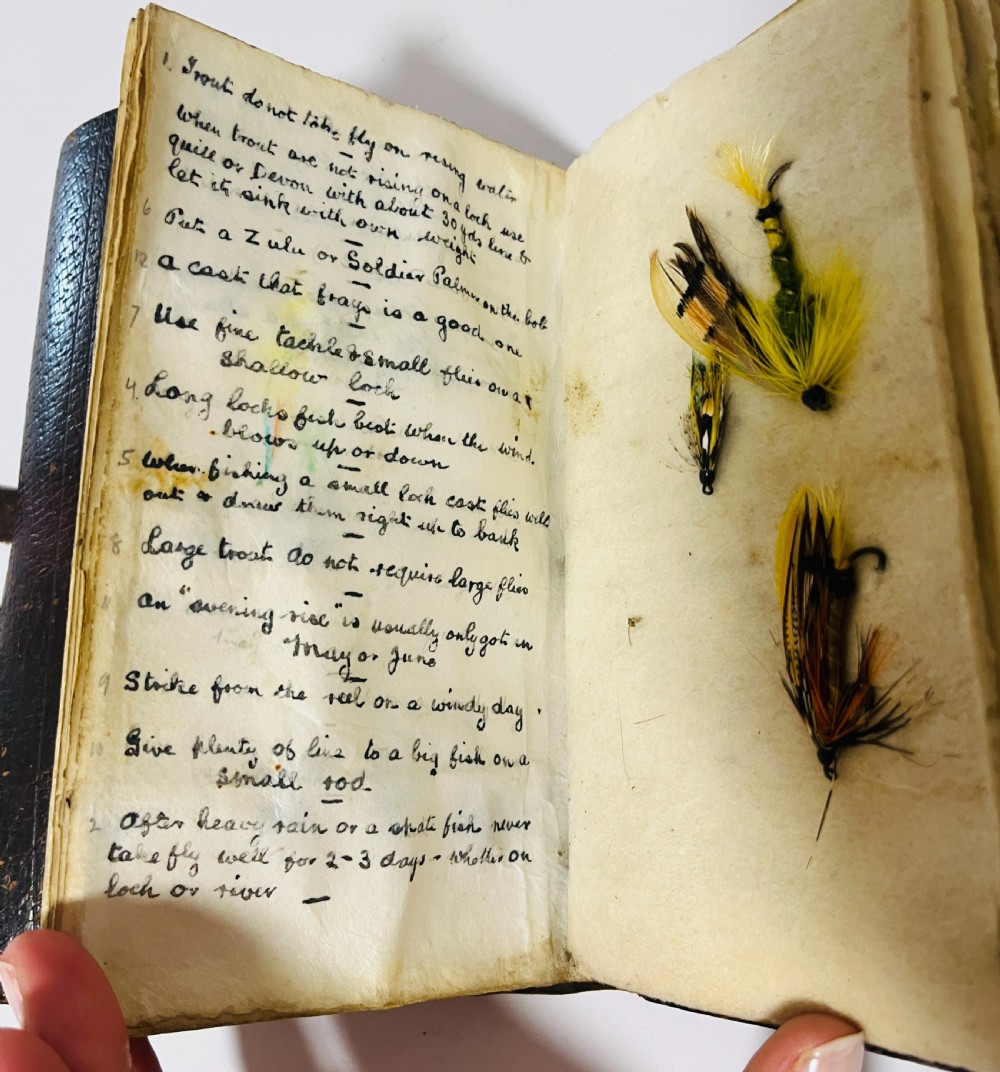 1. Trout do not take fly on rising water
—
When trout are not rising on a loch use
quill or Devon with about 30 yds line &
let it sink with own weight
—
6 Put a Zulu or Soldier Palmer on the bob
—
12 A cast that frays is a good one
—
7 Use fine tackle & small flies on a
shallow loch
—
4. Long lochs fish best when the wind
blows up or down
—
5 When fishing a small loch cast flies well
out & draw them right up to bank
—
8 Large trout do not require large flies
—
11 An "evening rise" is usually only got in
May or June
—
9 Strike from the reel on a windy day.
10 Give plenty of line to a big fish on a
small rod
—
2 After heavy rain or a spate fish never
take fly well for 2-3 days - whether on
loch or river —